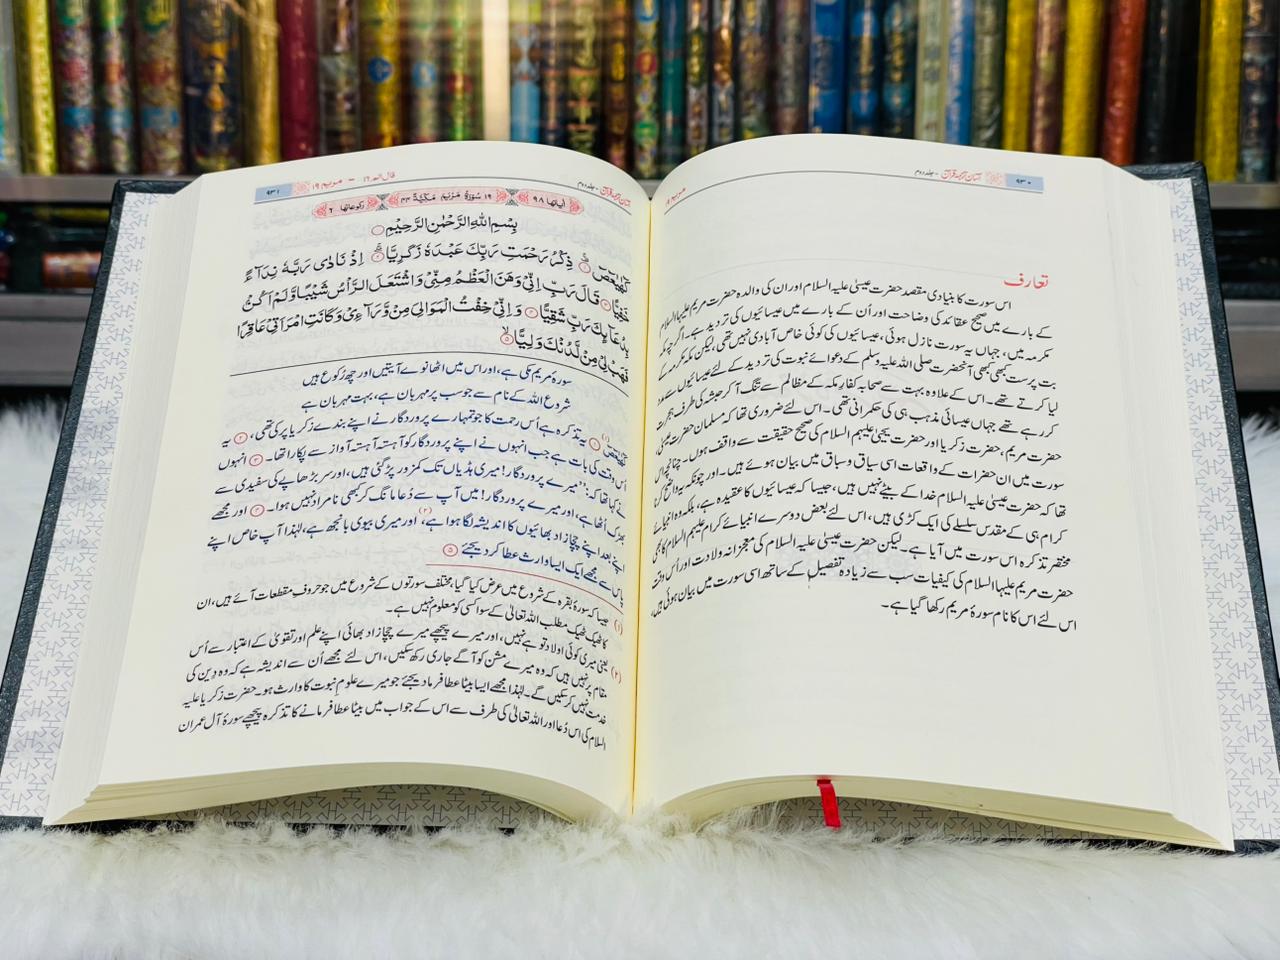 ۹۳۰
آسان ترجمۂ قرآن - جلد دوم
مریم ۱۹
تعارف
اس سورت کا بنیادی مقصد حضرت عیسیٰ علیہ السلام اور ان کی والدہ حضرت مریم علیہا السلام
کے بارے میں صحیح عقائد کی وضاحت اور اُن کے بارے میں عیسائیوں کی تردید ہے۔ اگرچہ
مکرمہ میں، جہاں یہ سورت نازل ہوئی، عیسائیوں کی کوئی خاص آبادی نہیں تھی، لیکن مکہ مکرمہ کے
بت پرست کبھی کبھی آنحضرت صلی اللہ علیہ وسلم کے دعوائے نبوت کی تردید کے لئے عیسائیوں سے
لیا کرتے تھے۔ اس کے علاوہ بہت سے صحابہ کفار مکہ کے مظالم سے تنگ آ کر حبشہ کی طرف ہجرت
کر رہے تھے جہاں عیسائی مذہب ہی کی حکمرانی تھی۔ اس لئے ضروری تھا کہ مسلمان حضرت عیسیٰ،
حضرت مریم، حضرت زکریا اور حضرت یحییٰ علیہم السلام کی صحیح حقیقت سے واقف ہوں۔ چنانچہ اس
سورت میں ان حضرات کے واقعات اسی سیاق و سباق میں بیان ہوئے ہیں۔ اور چونکہ یہ واضح کرنا
تھا کہ حضرت عیسیٰ علیہ السلام خدا کے بیٹے نہیں ہیں، جیسا کہ عیسائیوں کا عقیدہ ہے، بلکہ وہ انبیائے
کرام ہی کے مقدس سلسلے کی ایک کڑی ہیں، اس لئے بعض دوسرے انبیائے کرام علیہم السلام کا بھی
مختصر تذکرہ اس سورت میں آیا ہے۔ لیکن حضرت عیسیٰ علیہ السلام کی معجزانہ ولادت اور اُس وقت
حضرت مریم علیہا السلام کی کیفیات سب سے زیادہ تفصیل کے ساتھ اسی سورت میں بیان ہوئی ہیں،
اس لئے اس کا نام سورۂ مریم رکھا گیا ہے۔
آسان ترجمۂ قرآن - جلد دوم
قال الم ۱۶ - مریم ۱۹
۹۳۱
اٰیاتھا ۹۸
۱۹ سُوْرَةُ مَرْيَمَ مَكِّيَّةٌ ۴۴
رکوعاتھا ۶
بِسْمِ اللّٰهِ الرَّحْمٰنِ الرَّحِيْمِ
كٓهٰيٰعٓصٓ ۱ ذِكْرُ رَحْمَتِ رَبِّكَ عَبْدَهٗ زَكَرِيَّا ۲ اِذْ نَادٰى رَبَّهٗ نِدَآءً
خَفِيًّا ۳ قَالَ رَبِّ اِنِّيْ وَهَنَ الْعَظْمُ مِنِّيْ وَاشْتَعَلَ الرَّاْسُ شَيْبًا وَّلَمْ اَكُنْۢ
بِدُعَآئِكَ رَبِّ شَقِيًّا ۴ وَاِنِّيْ خِفْتُ الْمَوَالِيَ مِنْ وَّرَآءِيْ وَكَانَتِ امْرَاَتِيْ عَاقِرًا
فَهَبْ لِيْ مِنْ لَّدُنْكَ وَلِيًّا ۵
سورۂ مریم مکی ہے، اور اس میں اٹھانوے آیتیں اور چھ رُکوع ہیں
شروع اللہ کے نام سے جو سب پر مہربان ہے، بہت مہربان ہے
كٓهٰيٰعٓصٓ (۱) ۱ یہ تذکرہ ہے اُس رحمت کا جو تمہارے پروردگار نے اپنے بندے زکریا پر کی تھی، ۲ یہ
اُس وقت کی بات ہے جب انہوں نے اپنے پروردگار کو آہستہ آہستہ آواز سے پکارا تھا۔ ۳ انہوں
نے کہا تھا کہ: ”میرے پروردگار! میری ہڈیاں تک کمزور پڑ گئی ہیں، اور سر بڑھاپے کی سفیدی سے
بھڑک اُٹھا ہے، اور میرے پروردگار! میں آپ سے دُعا مانگ کر کبھی نامراد نہیں ہوا۔ ۴ اور مجھے
اپنے بعد اپنے چچا زاد بھائیوں کا اندیشہ لگا ہوا ہے، (۲) اور میری بیوی بانجھ ہے، لہٰذا آپ خاص اپنے
پاس سے مجھے ایک ایسا وارث عطا کر دیجئے ۵
(۱) جیسا کہ سورۂ بقرہ کے شروع میں عرض کیا گیا، مختلف سورتوں کے شروع میں جو حروفِ مقطعات آئے ہیں، ان
کا ٹھیک ٹھیک مطلب اللہ تعالیٰ کے سوا کسی کو معلوم نہیں ہے۔
(۲) یعنی میری کوئی اولاد تو ہے نہیں، اور میرے پیچھے میرے چچا زاد بھائی اپنے علم اور تقویٰ کے اعتبار سے اُس
مقام پر نہیں ہیں کہ وہ میرے مشن کو آگے جاری رکھ سکیں، اس لئے مجھے اُن سے اندیشہ ہے کہ وہ دین کی
خدمت نہیں کر سکیں گے۔ لہٰذا مجھے ایسا بیٹا عطا فرما دیجئے جو میرے علومِ نبوت کا وارث ہو۔ حضرت زکریا علیہ
السلام کی اس دُعا اور اللہ تعالیٰ کی طرف سے اس کے جواب میں بیٹا عطا فرمانے کا تذکرہ پیچھے سورۂ آل عمران